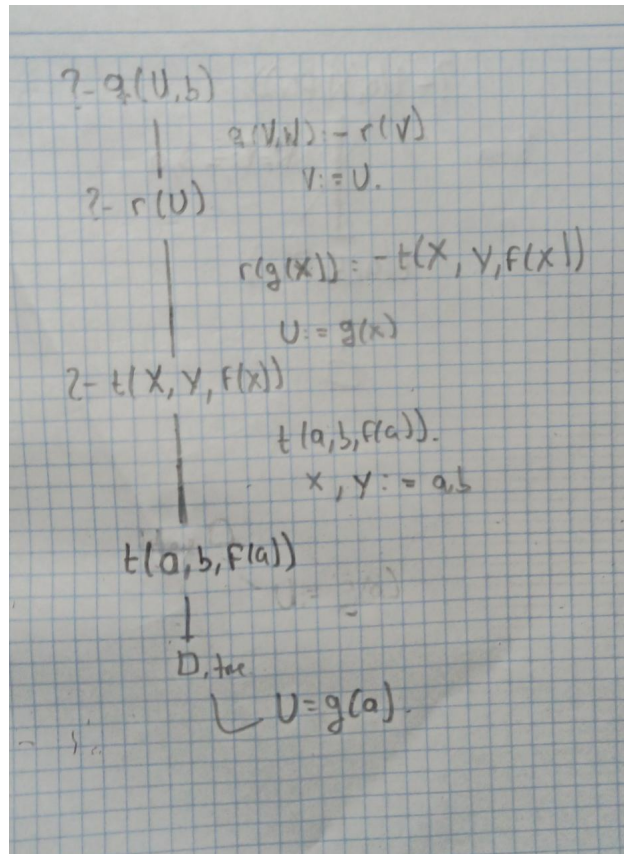 ?- q(U,b)
q(V,W):- r(V)
V:=U.
?- r(U)
r(g(X)):-t(X, Y, f(X))
U:= g(x)
?- t(X, Y, f(x))
t(a,b,f(a)).
x, y:= a,b
t(a, b, f(a))
U=g(a).